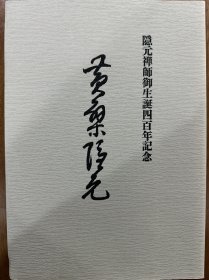 隠元禅師御生誕四百年記念
黄檗隠元